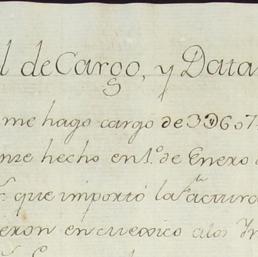 l de Cargo, y Data
me hago cargo de 3D607
nte hecho en 1.º de Enero
que importó la factura
eron en cuexico a los Yn